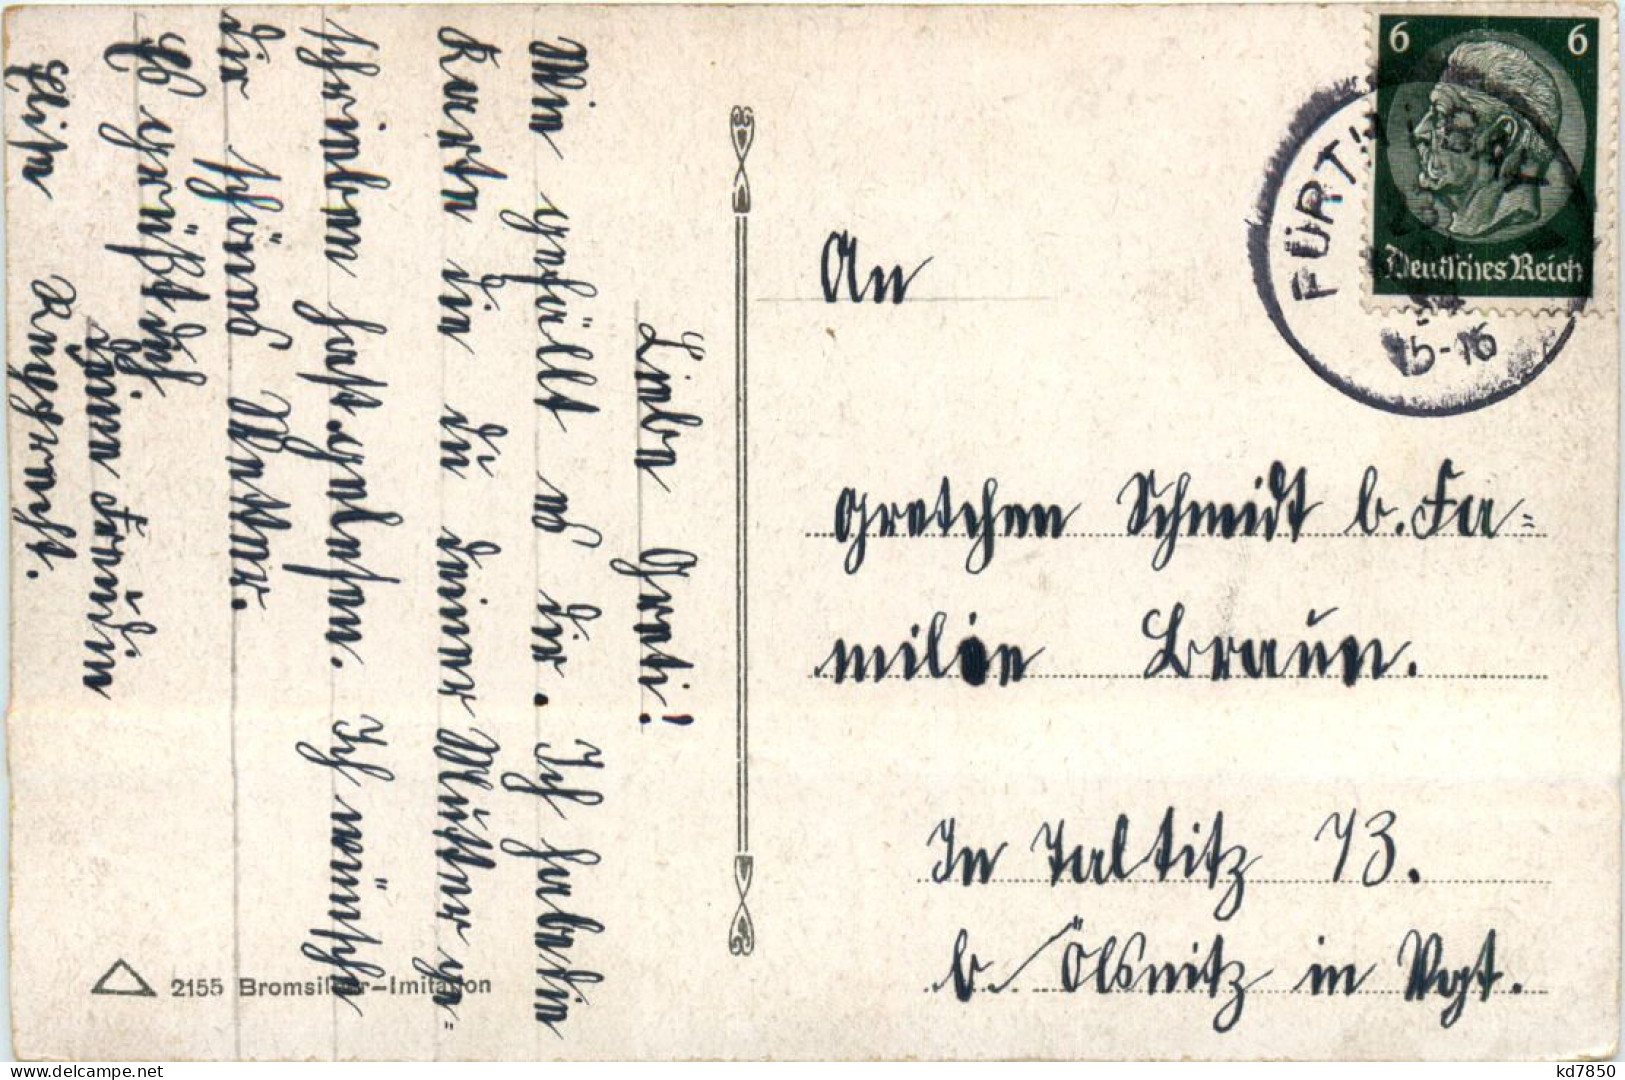 Liebe Greti!
Wie gefällt es dir. Ich habe die
Karte die du deiner Mutter ge-
schrieben hast gelesen. Ich wünsche
dir schönes Wetter.
Es grüßt dich
deine Freundin
Rupprecht.
6 6
Deutsches Reich
FÜRTH i. BAY
15-16
An
Gretchen Schmidt b. Fa-
milie Braun.
In Taltitz 73.
b. Ölsnitz in Vogt.
2155 Bromsilber-Imitation
www.delcampe.net
kd7850